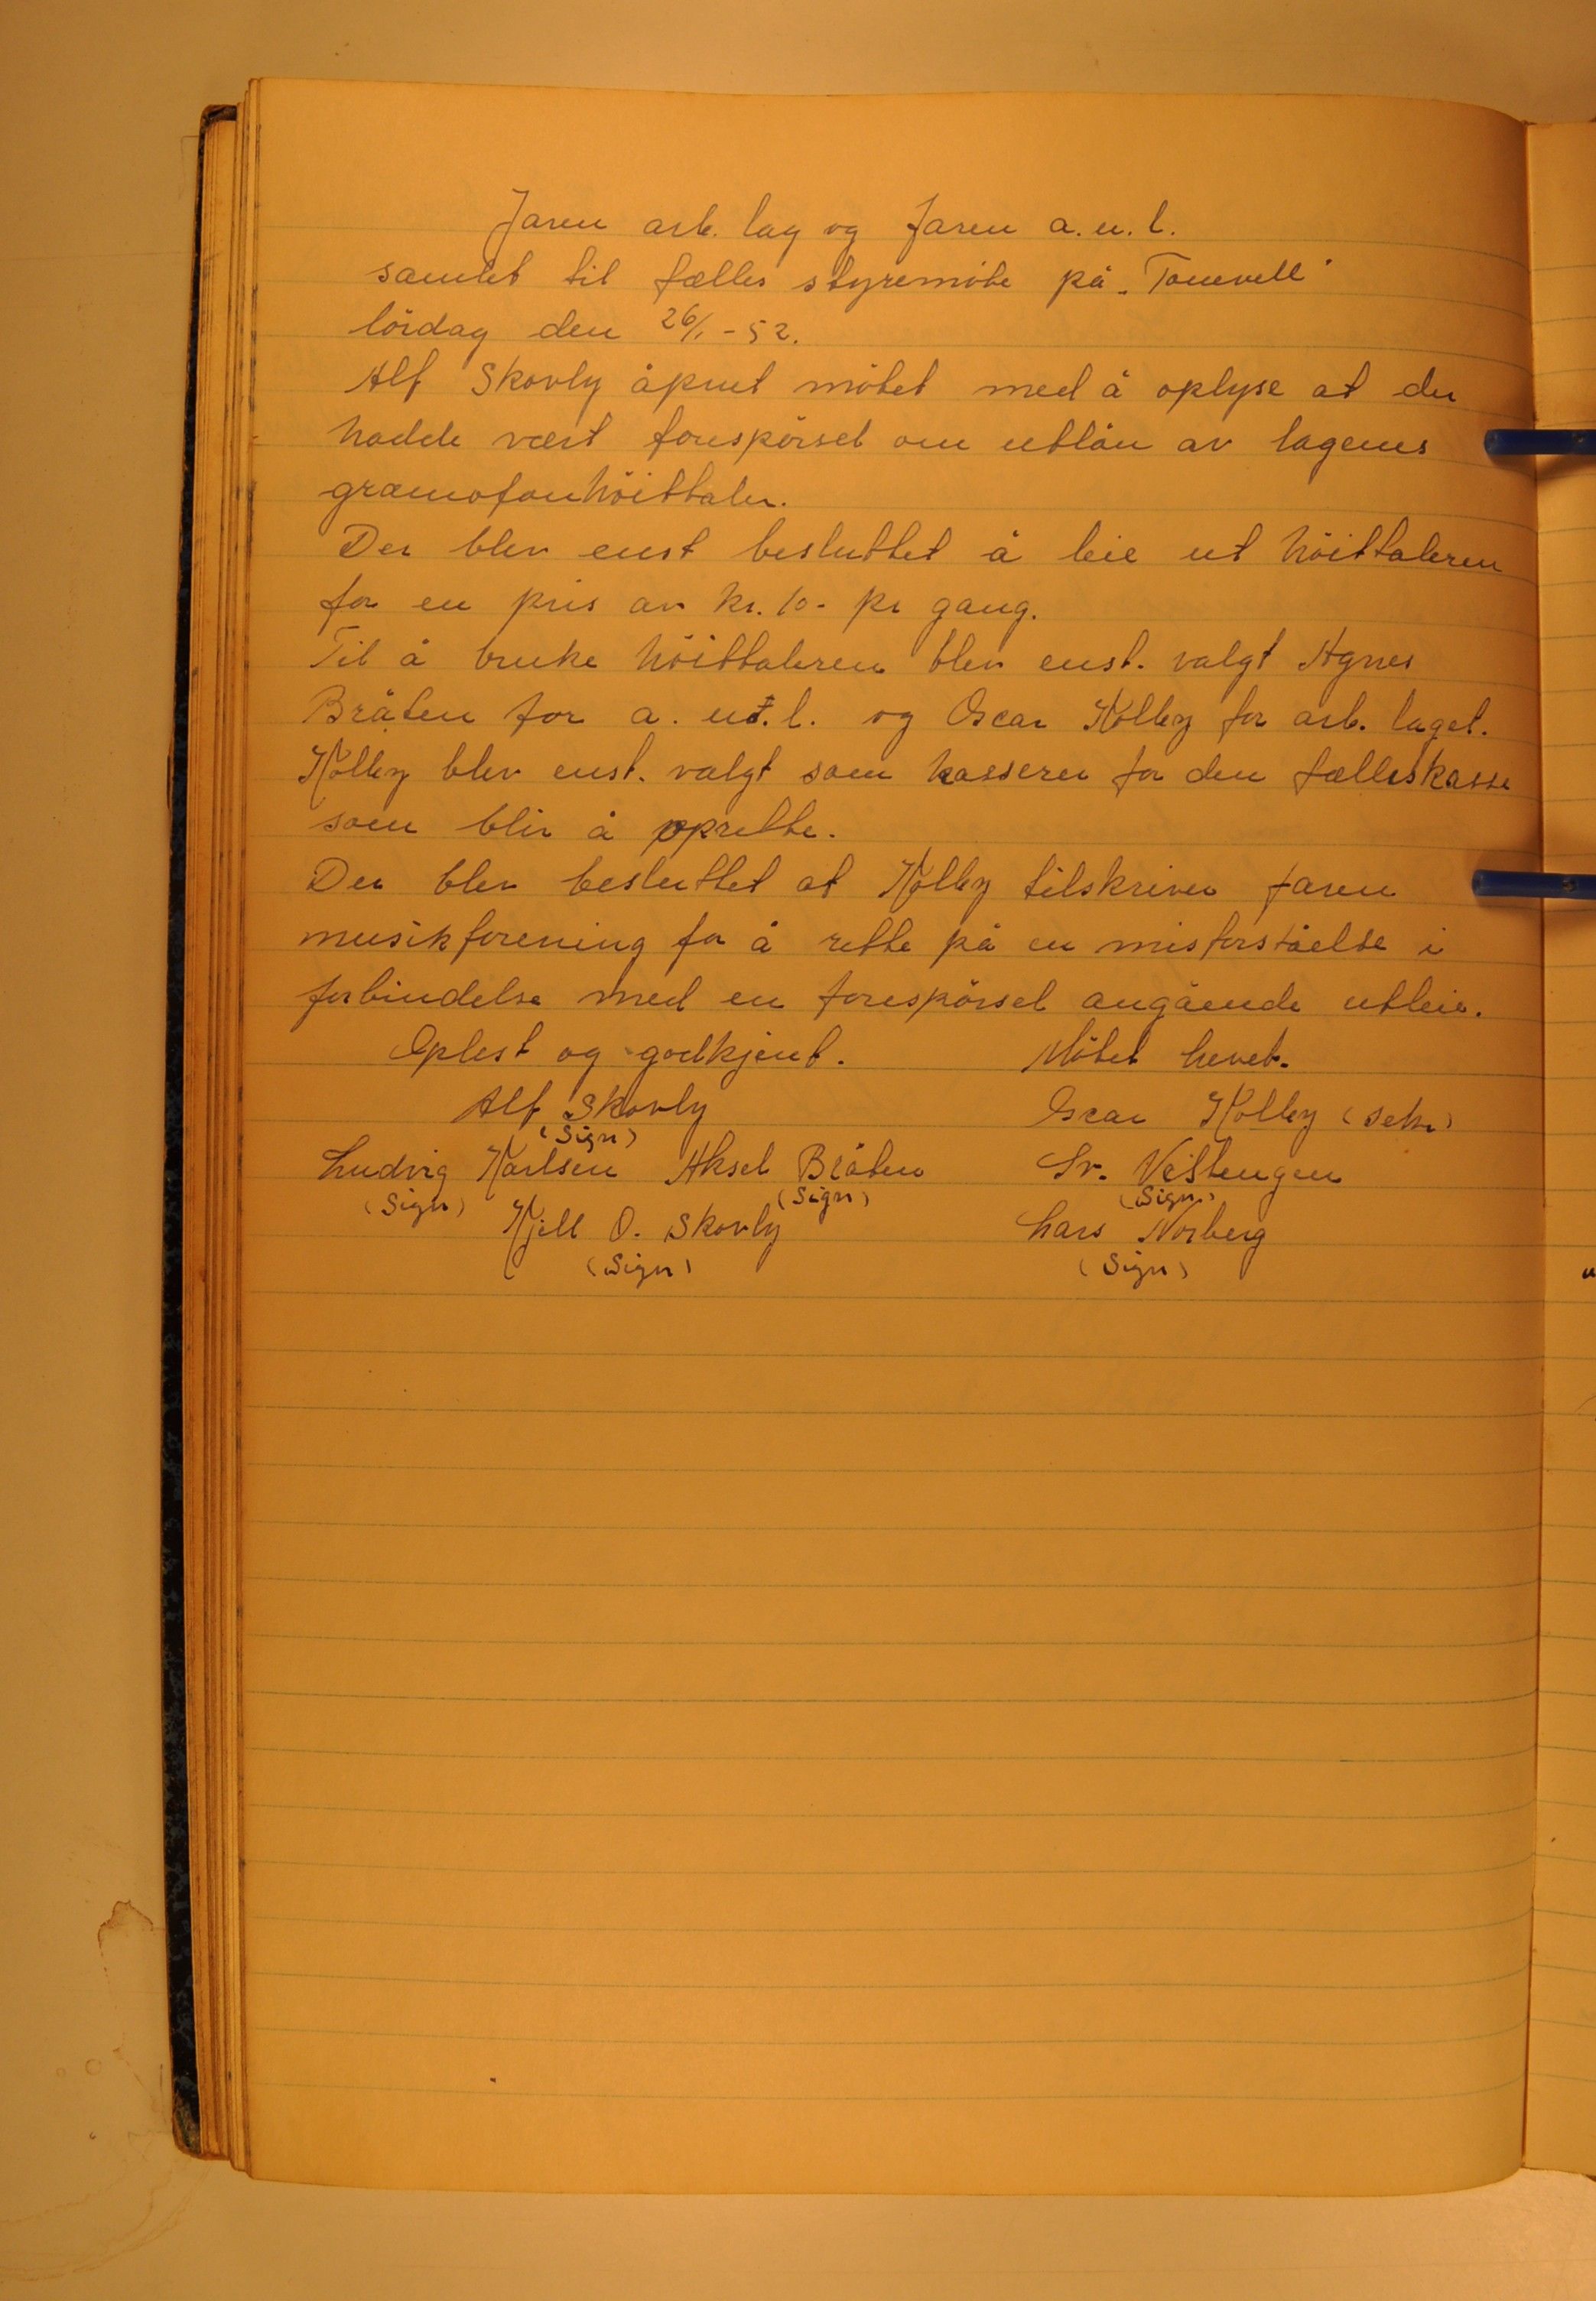 Jaren arb. lag og Jaren a. u. l.
samlet til fælles styremöte på „Tomevell"
lördag den 26/1 - 52.
Alf Skovly åpnet mötet med å oplyse at der
hadde vært forespörsel om utlån av lagenes
gramofonhöittaler.
Der blev enst besluttet å leie ut höittaleren
for en pris av kr. 10- pr gang.
Til å bruke höittaleren blev enst. valgt Agnes
Bråten for a. u. l. og Oscar Kolby for arb. laget.
Kolby blev enst. valgt som kasserer for den fælleskasse
som blir å oprette.
Der blev besluttet at Kolby tilskriver Jaren
musikforening for å rette på en misforståelse i
forbindelse med en forespörsel angående utleie.
Oplest og godkjent. Mötet hevet.
Alf Skovly Oscar Kolby (sekr)
(Sign)
Ludvig Karlsen Aksel Bråten Sv. Vestengen
(Sign) (Sign) (Sign)
Kjell O. Skovly Lars Norberg
(Sign) (Sign)